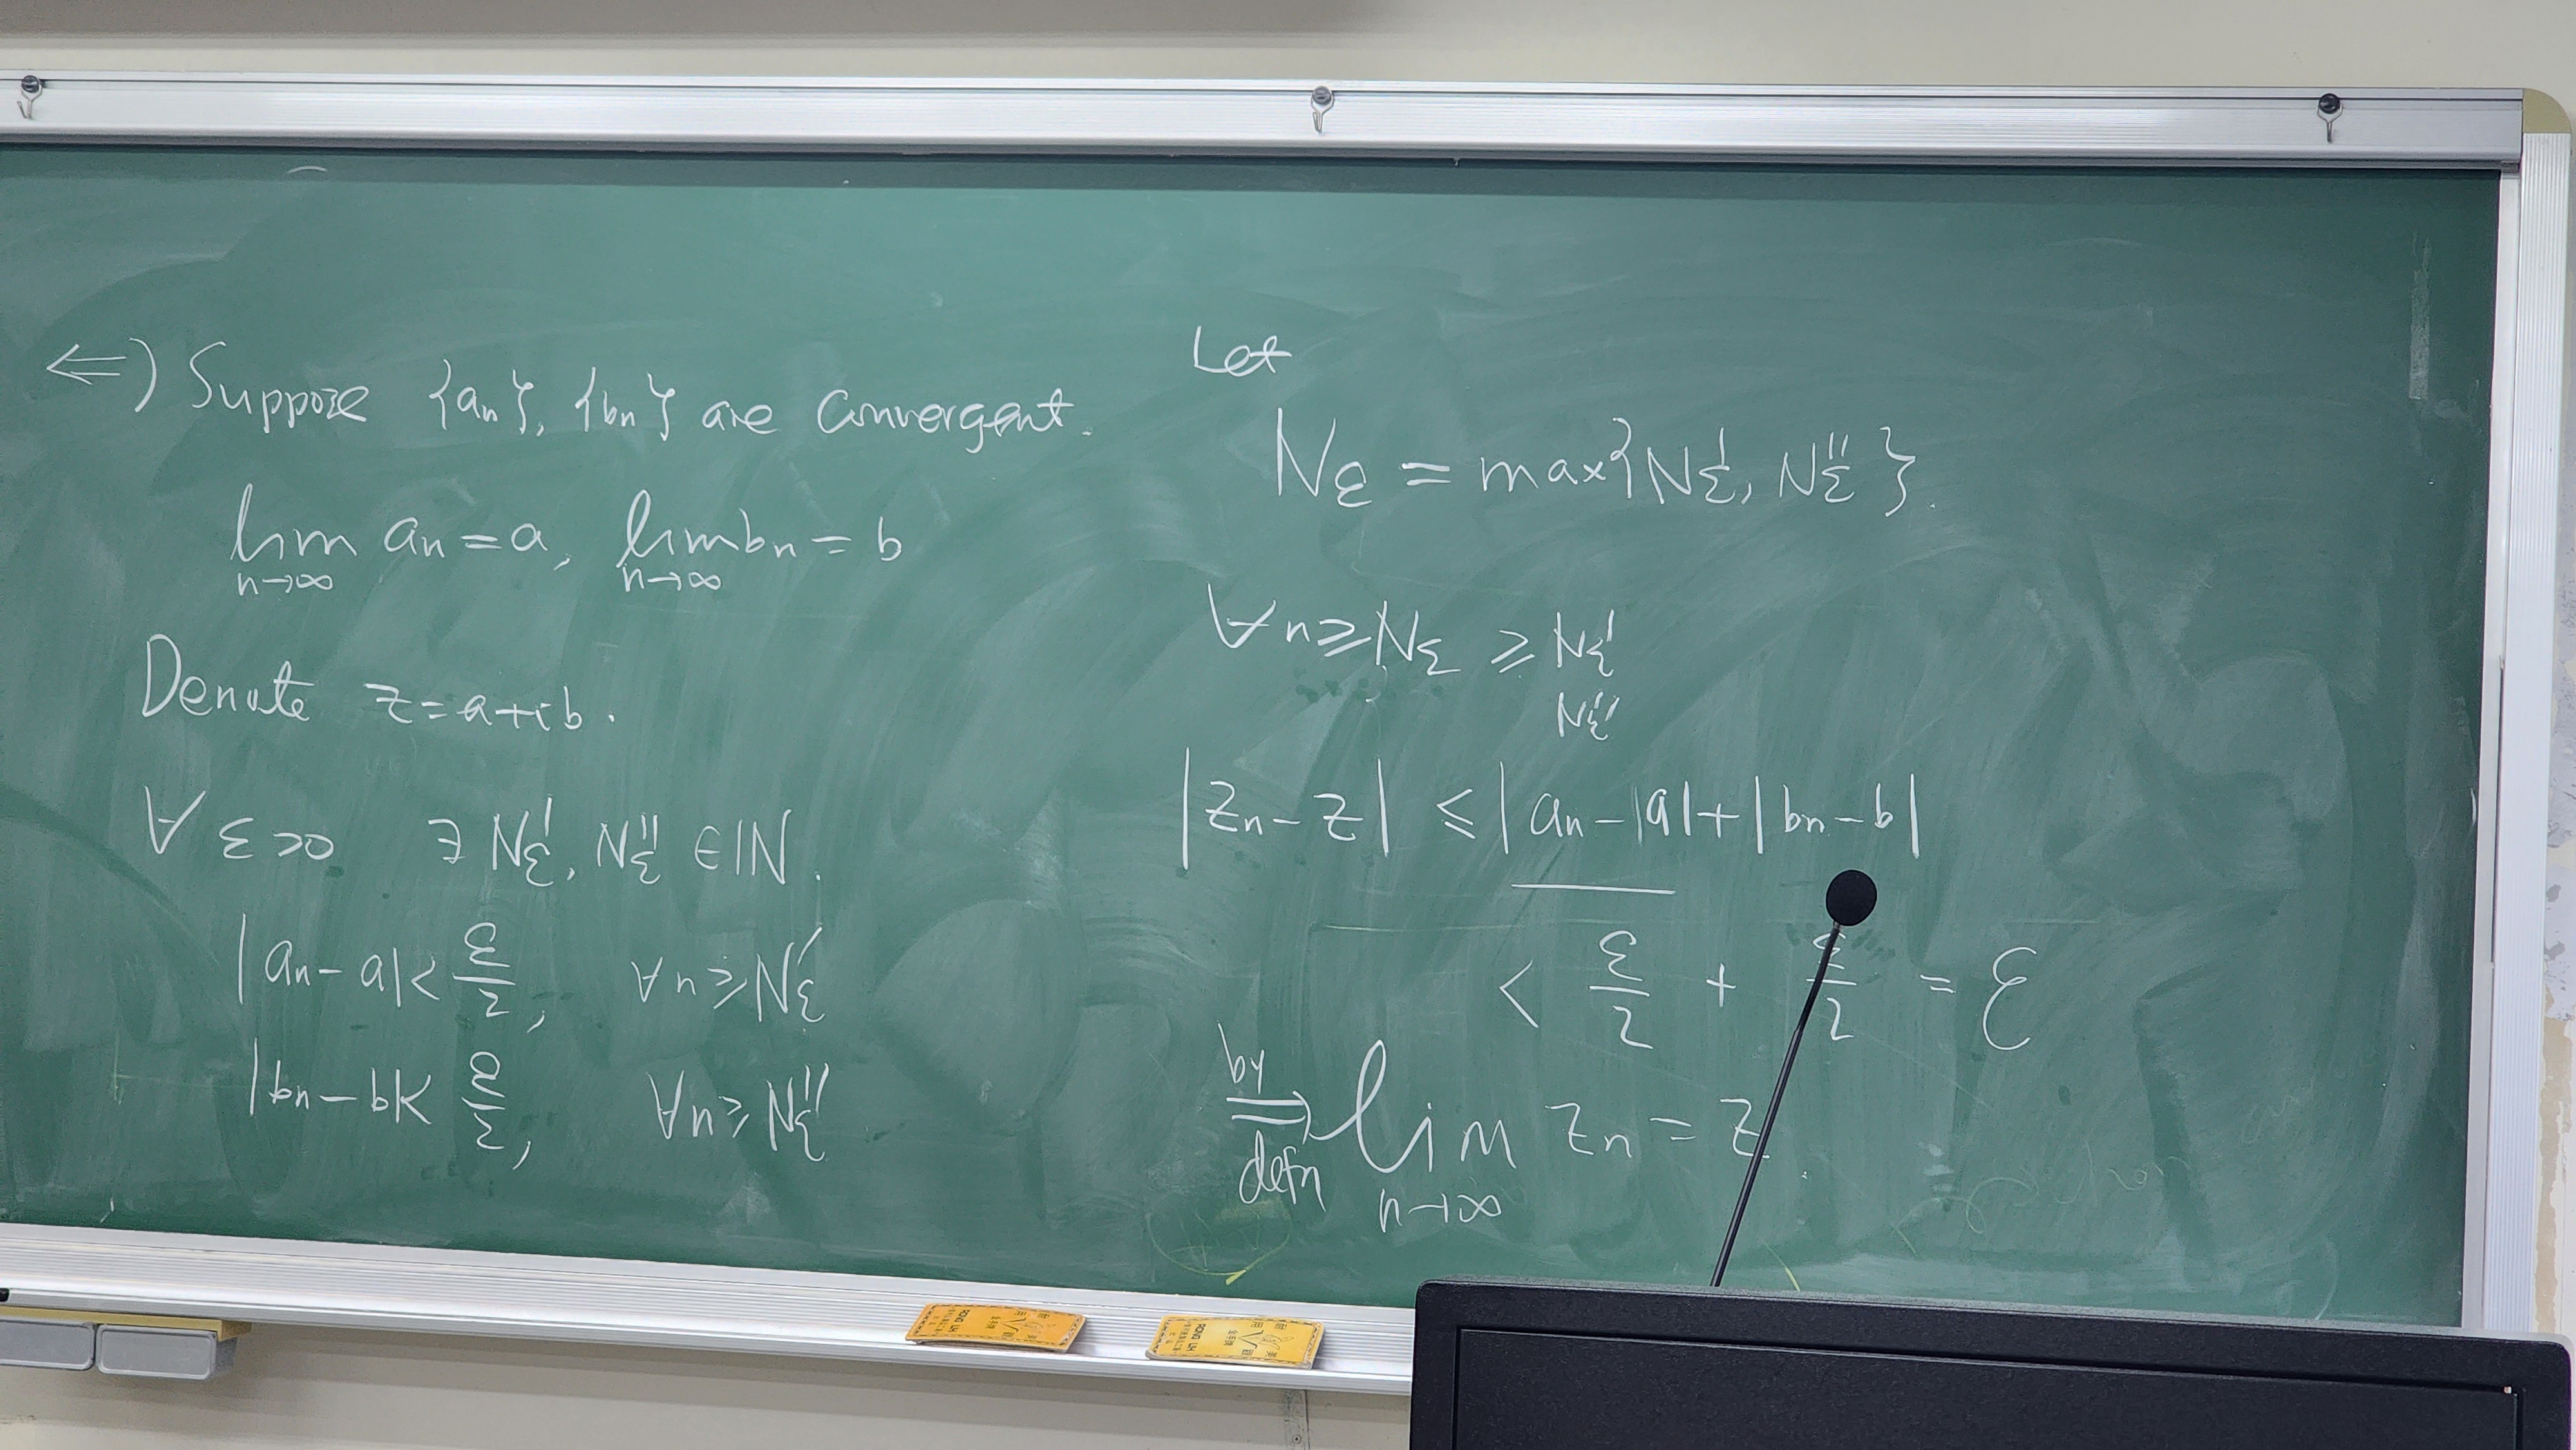 ⇐) Suppose {an}, {bn} are convergent.
lim an = a, lim bn = b
n→∞ n→∞
Denote z = a+ib.
∀ ε>0 ∃ N'ε, N''ε ∈ ℕ.
|an - a| < ε/2, ∀n ≥ N'ε
|bn - b| < ε/2, ∀n ≥ N''ε
Let
Nε = max{N'ε, N''ε}.
∀n ≥ Nε ≥ N'ε
N''ε
|zn - z| ≤ |an - |a| + |bn - b|
< ε/2 + ε/2 = ε
by
⇒ lim zn = z
defn n→∞